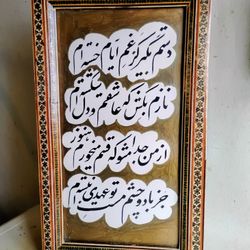 دستم بگیر کز غم ایام خسته‌ام
نازم بکش که عاشقم و دل شکسته‌ام
از من جدا مشو که قسم میخورم هنوز
جز با دو چشم مست تو عهدی نبسته‌ام